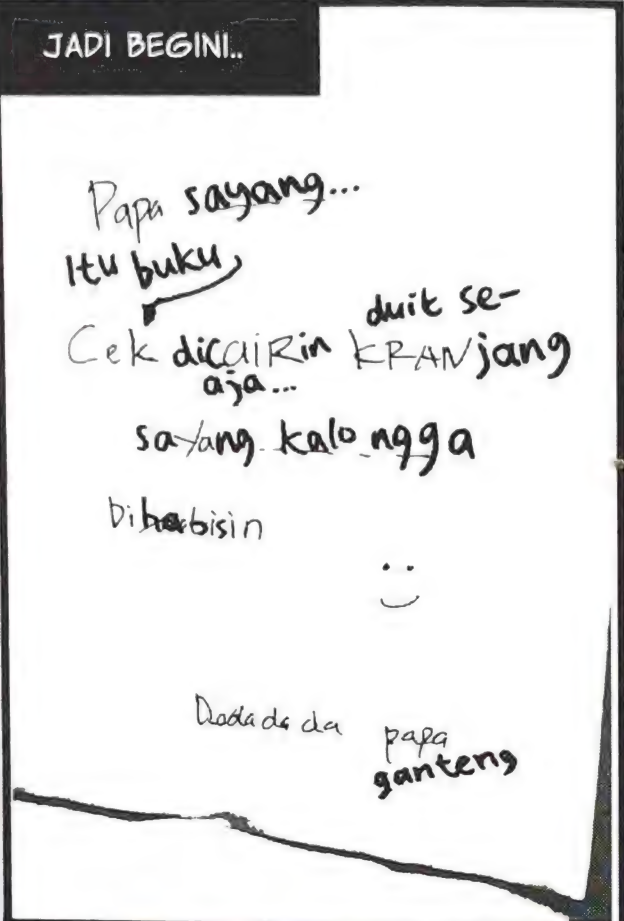 JADI BEGINI..
Papa sayang...
Itu buku
duit se-
Cek dicaiRin KRANjang
aja...
sayang kalo ngga
Dihabisin
Dadadada papa
ganteng